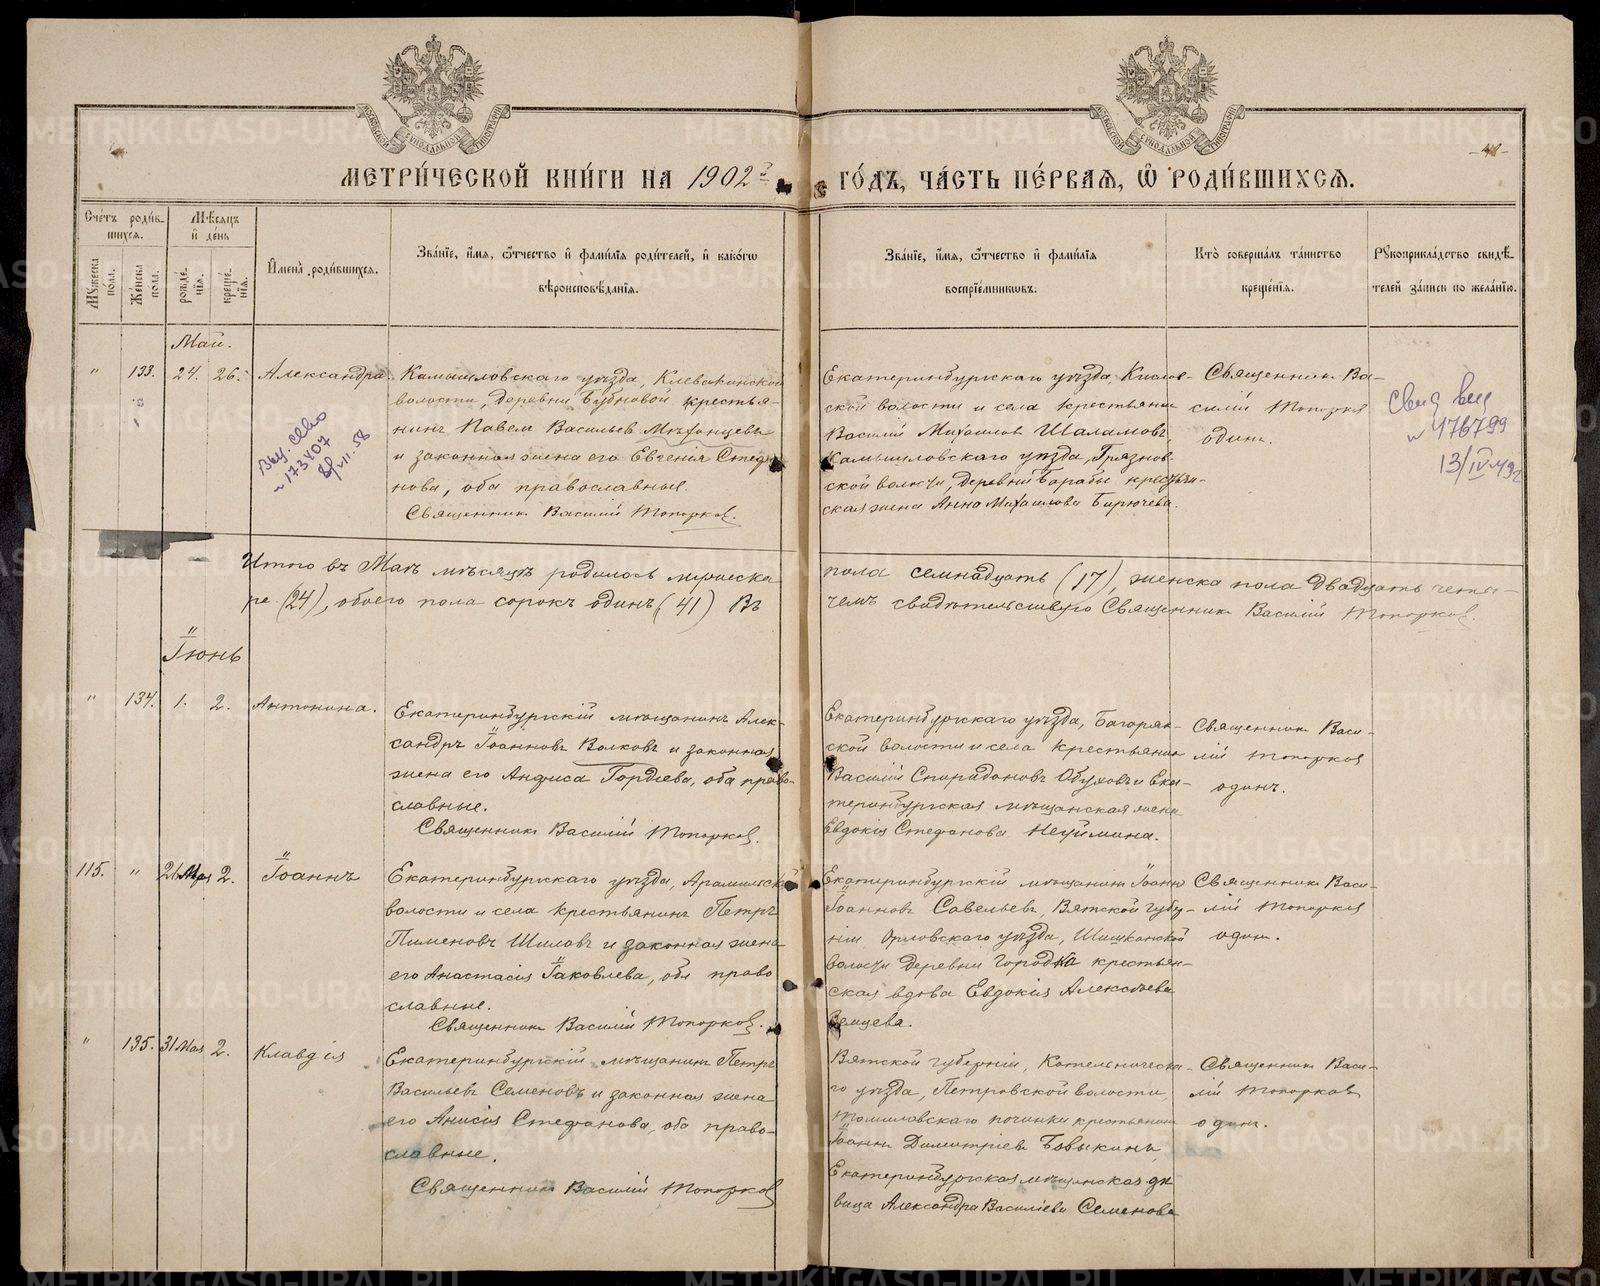 МОСКОВСКОЙ СѴНОДАЛЬНОЙ ТИПОГРАФІИ
МОСКОВСКОЙ СѴНОДАЛЬНОЙ ТИПОГРАФІИ
МЕТРИ́ЧЕСКОЙ КНИ́ГИ НА 1902й
ГО́ДЪ, ЧА́СТЬ ПЕ́РВАЯ, Ѽ РОДИ́ВШИХСЯ.
Сче́тъ роди́в-
шихся.
Мѣ́сяцъ
и҆ де́нь
Му́жеска пола.
Же́нска пола.
рожде́нїя.
креще́нїя.
И҆мена̀ роди́вшихся.
Зва́нїе, и҆́мя, ѻ҆́тчество и҆ фами́лїя роди́телей, и҆ како́гѡ
вѣроисповѣ́данїя.
Зва́нїе, и҆́мя, ѻ҆́тчество и҆ фами́лїя
воспрїе́мникѡвъ.
Кто̀ соверша́лъ та́инство
креще́нїя.
Рꙋкоприкла́дство свидѣ́-
телей за́писи по жела́нїю.
Май.
" 133. 24. 26. Александра.
Камышловскаго уѣзда, Клевакинской
волости, деревни Бубновой крестья-
нинъ Павелъ Васильевъ
и законная жена его Евгенія Стефа-
нова, оба православные.
Священникъ Василій Топорковъ.
Екатеринбургскаго уѣзда, Кислов-
ской волости и села крестьянинъ
Василій Михаиловъ Шаламовъ,
Камышловскаго уѣзда, Грязнов-
ской волости, деревни Барабы крестьян-
ская жена Анна Михаилова Бирючева.
Священникъ Ва-
силій Топорковъ
одинъ.
№ 173407
№ 176799
13/IV-49г
Итого въ Маѣ мѣсяцѣ родилось мужеска
пола семнадцать (17), женска пола двадцать четы-
ре (24), обоего пола сорокъ одинъ (41) Въ
чемъ свидѣтельствую Священникъ Василій Топорковъ.
Іюнь
" 134. 1. 2. Антонина.
Екатеринбургскій мѣщанинъ Алек-
сандръ Іоанновъ Волковъ и законная
жена его Анфиса Гордѣева, оба право-
славные.
Священникъ Василій Топорковъ.
Екатеринбургскаго уѣзда, Багаряк-
ской волости и села крестьянинъ
Василій Спиридоновъ Обуховъ и Ека-
теринбургская мѣщанская жена
Евдокія Стефанова Неуймина.
Священникъ Васи-
лій Топорковъ
одинъ.
115. " 21 Мая 2. Іоаннъ
Екатеринбургскаго уѣзда, Арамильской
волости и села крестьянинъ Петръ
Пименовъ Шиловъ и законная жена
его Анастасія Іаковлева, оба право
славные.
Священникъ Василій Топорковъ.
Екатеринбургскій мѣщанинъ Іоаннъ
Іоанновъ Савельевъ, Вятской губер-
ніи Орловскаго уѣзда, Шишканской
волости деревни Городка крестьян-
ская вдова Евдокія Алексѣева
Священникъ Васи-
лій Топорковъ
одинъ.
" 135. 31 Мая 2. Клавдія
Екатеринбургскій мѣщанинъ Петръ
Васильевъ Семеновъ и законная жена
его Анисія Стефанова, оба право-
славные.
Священникъ Василій Топорковъ
Вятской губерніи, Котельническа-
го уѣзда, Петровской волости,
Томиловскаго починка крестьянинъ
Іоаннъ Димитріевъ Бовыкинъ,
Екатеринбургская мѣщанская дѣ
вица Александра Василіева Семенова
Священникъ Васи-
лій Топорковъ
одинъ.
METRIKI.GASO-URAL.RU